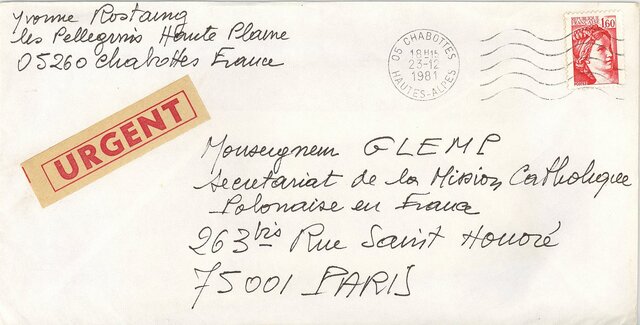 Yvonne Rostaing
les Pellegrins Haute Plaine
05260 Chabottes France
05 CHABOTTES
18H15
23-12
1981
HAUTES-ALPES
1,60
URGENT
Monseigneur GLEMP
Secretariat de la Mission Catholique
Polonaise en France
263 bis Rue Saint Honoré
75001 PARIS